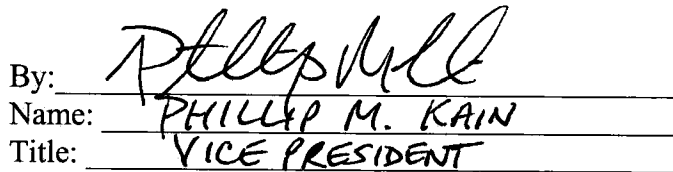 By:
Name: PHILLIP M. KAIN
Title: VICE PRESIDENT